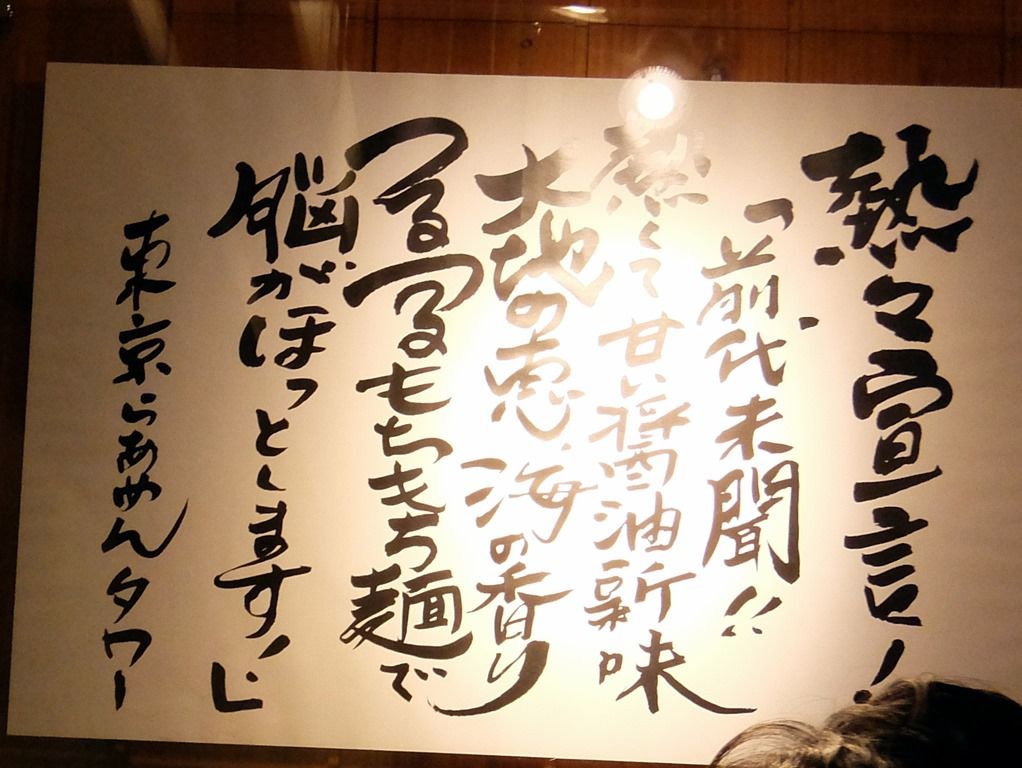 熱々宣言！
「前代未聞!!
熱くて甘い醤油新味
大地の恵、海の香り
つるつるもちもち麺で
脳がほっとします！」
東京らあめんタワー